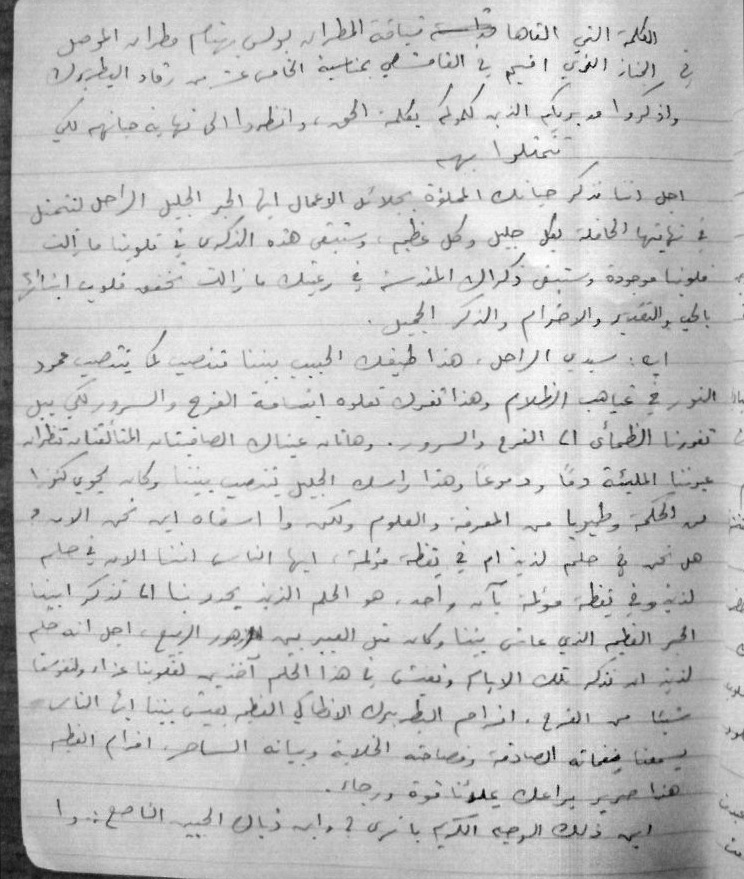 الكلمة التي القاها نيافة المطران بولس بهنام مطران الموصل
في الجناز الذي اقيم في القامشلي بمناسبة الخامس عشر من رقاد البطريرك
واذكروا مدبريكم الذين كلموكم بكلمة الحق، وانظروا الى نهاية حياتهم لكي
تتمثلوا بهم
اجل اننا نذكر حياتك المملؤة بجلائل الاعمال ايها الحبر الجليل الراحل لنتمثل
في نهايتها الحافلة بكل جليل وكل عظيم، وستبقى هذه الذكرى في قلوبنا ما زالت
قلوبنا موجودة وستبقى ذكراك المقدسة في رعيتك ما زالت تخفق قلوب ابنائها
بالحب والتقدير والاحترام والذكر الجميل.
ايه: سيدي الراحل، هذا طيفك الحبيب بيننا ينتصب كما ينتصب عمود
النور في غياهب الظلام وهذا ثغرك تعلوه ابتسامة الفرح والسرور لكي يبل
ثغورنا الظمأى الى الفرح والسرور. وهاتان عيناك الصافيتان المتألقتان تنظران
عيوننا المليئة دمًا ودموعًا وهذا راسك الجليل ينتصب بيننا وكان يحوي كنوزا
من الحكمة وطيوبا من المعرفة والعلوم ولكن وا اسفاه اين نحن الان و
هل نحن في حلم لذيذ ام في يقظة مؤلمة، ايها الناس اننا الان في حلم
لذيذ وفي يقظة مؤلمة بآن واحد، هو الحلم الذي يحدو بنا الى تذكر ابينا
الحبر العظيم الذي عاش بيننا وكان مثل العبير بين زهور الربيع، اجل انه حلم
لذيذ ان نذكر تلك الايام ونعيش في هذا الحلم آخذين لقلوبنا عزاء ولنفوسنا
شيئا من الفرح. افرام البطريرك الانطاكي العظيم يعيش بيننا ايها الناس
يسمعنا نغماته الصادقة وفصاحته الخلابة وبيانه الساحر، افرام العظيم
هذا صرير يراعك يملأنا قوة ورجاء.
اين ذلك الوجه الكريم يا ترى؟ واين ذياك الجبين الناصع: وا